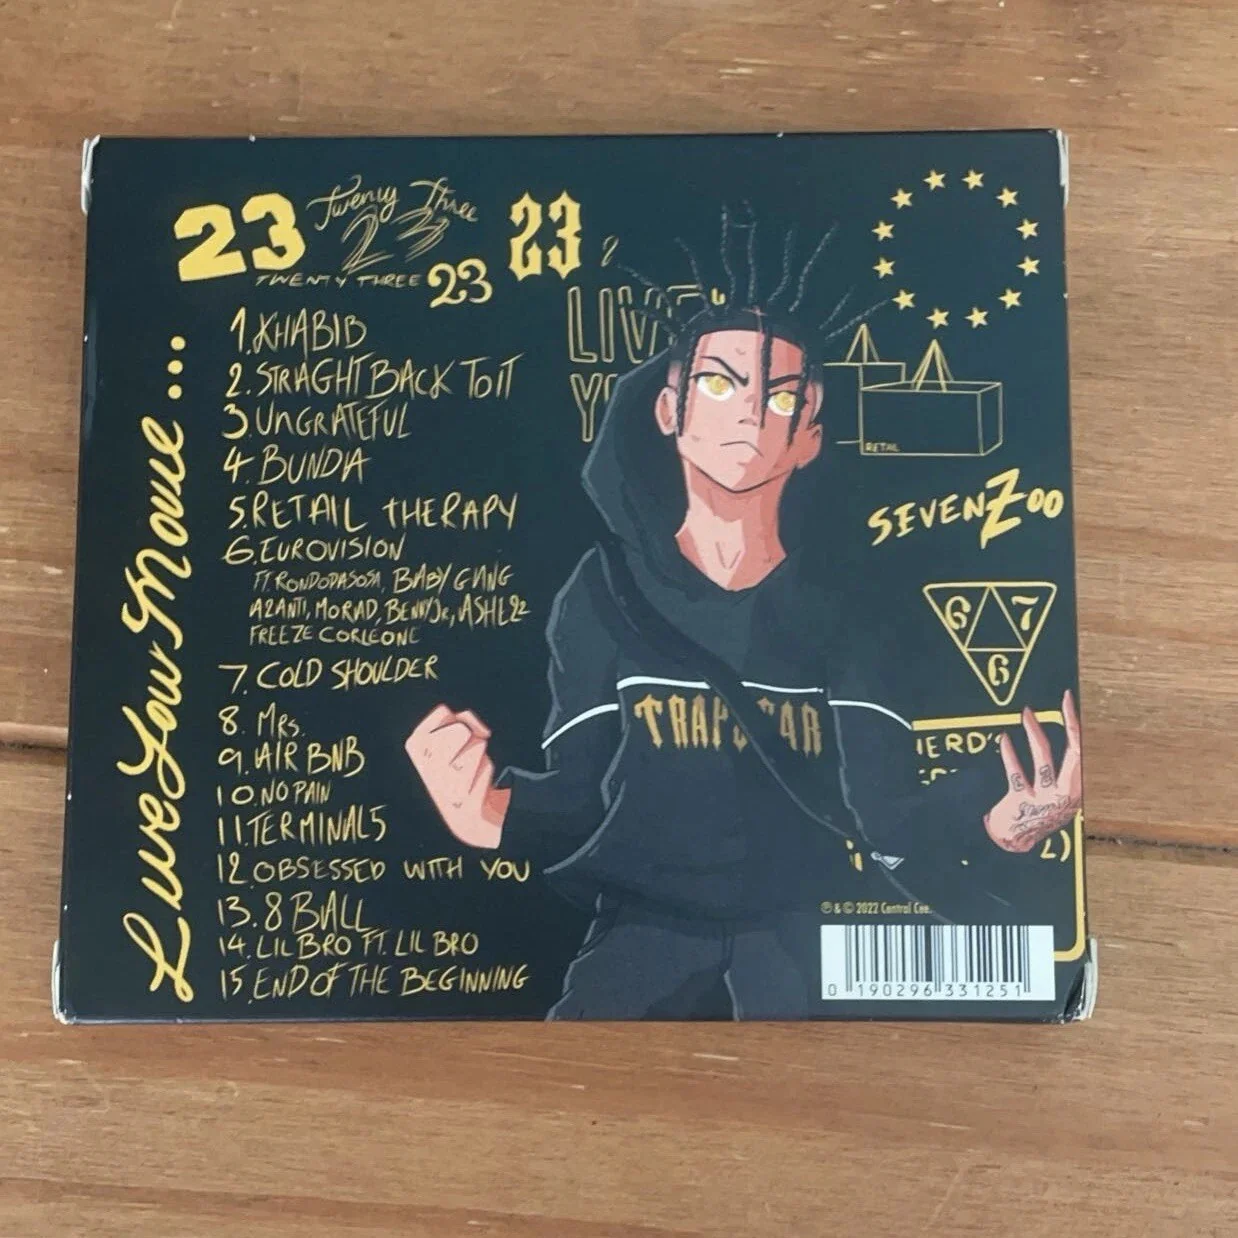 23
Twenty Three
23
TWENTY THREE
23
23
LIVE
1. KHABIB
2. STRIAGHT BACK TO IT
3. UNGRATEFUL
4. BUNDA
5. RETAIL THERAPY
6. EUROVISION
FT. RONDODASOSA, BABY GANG
A2ANTI, MORAD, BENNY JR, ASHE 22
FREEZE CORLEONE
7. COLD SHOULDER
8. MRS.
9. AIR BNB
10. NO PAIN
11 TERMINAL 5
12. OBSESSED WITH YOU
13. 8 BALL
14. LIL BRO FT. LIL BRO
15. END OF THE BEGINNING
Live Your Movie...
RETAIL
SEVENZOO
6 7
6
TRAPSTAR
HERD'S
℗ & © 2022 Central Cee.
0 190296 331251